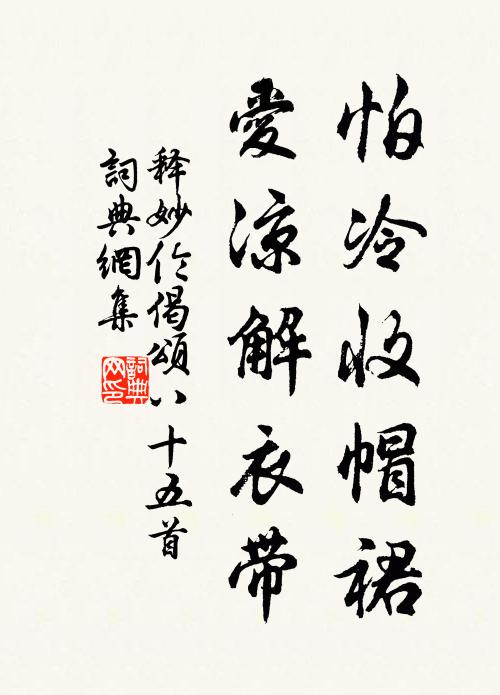 怕冷收帽裙
愛凉解衣带
释妙伦偈頌八十五首
詞典網集
詞典网印